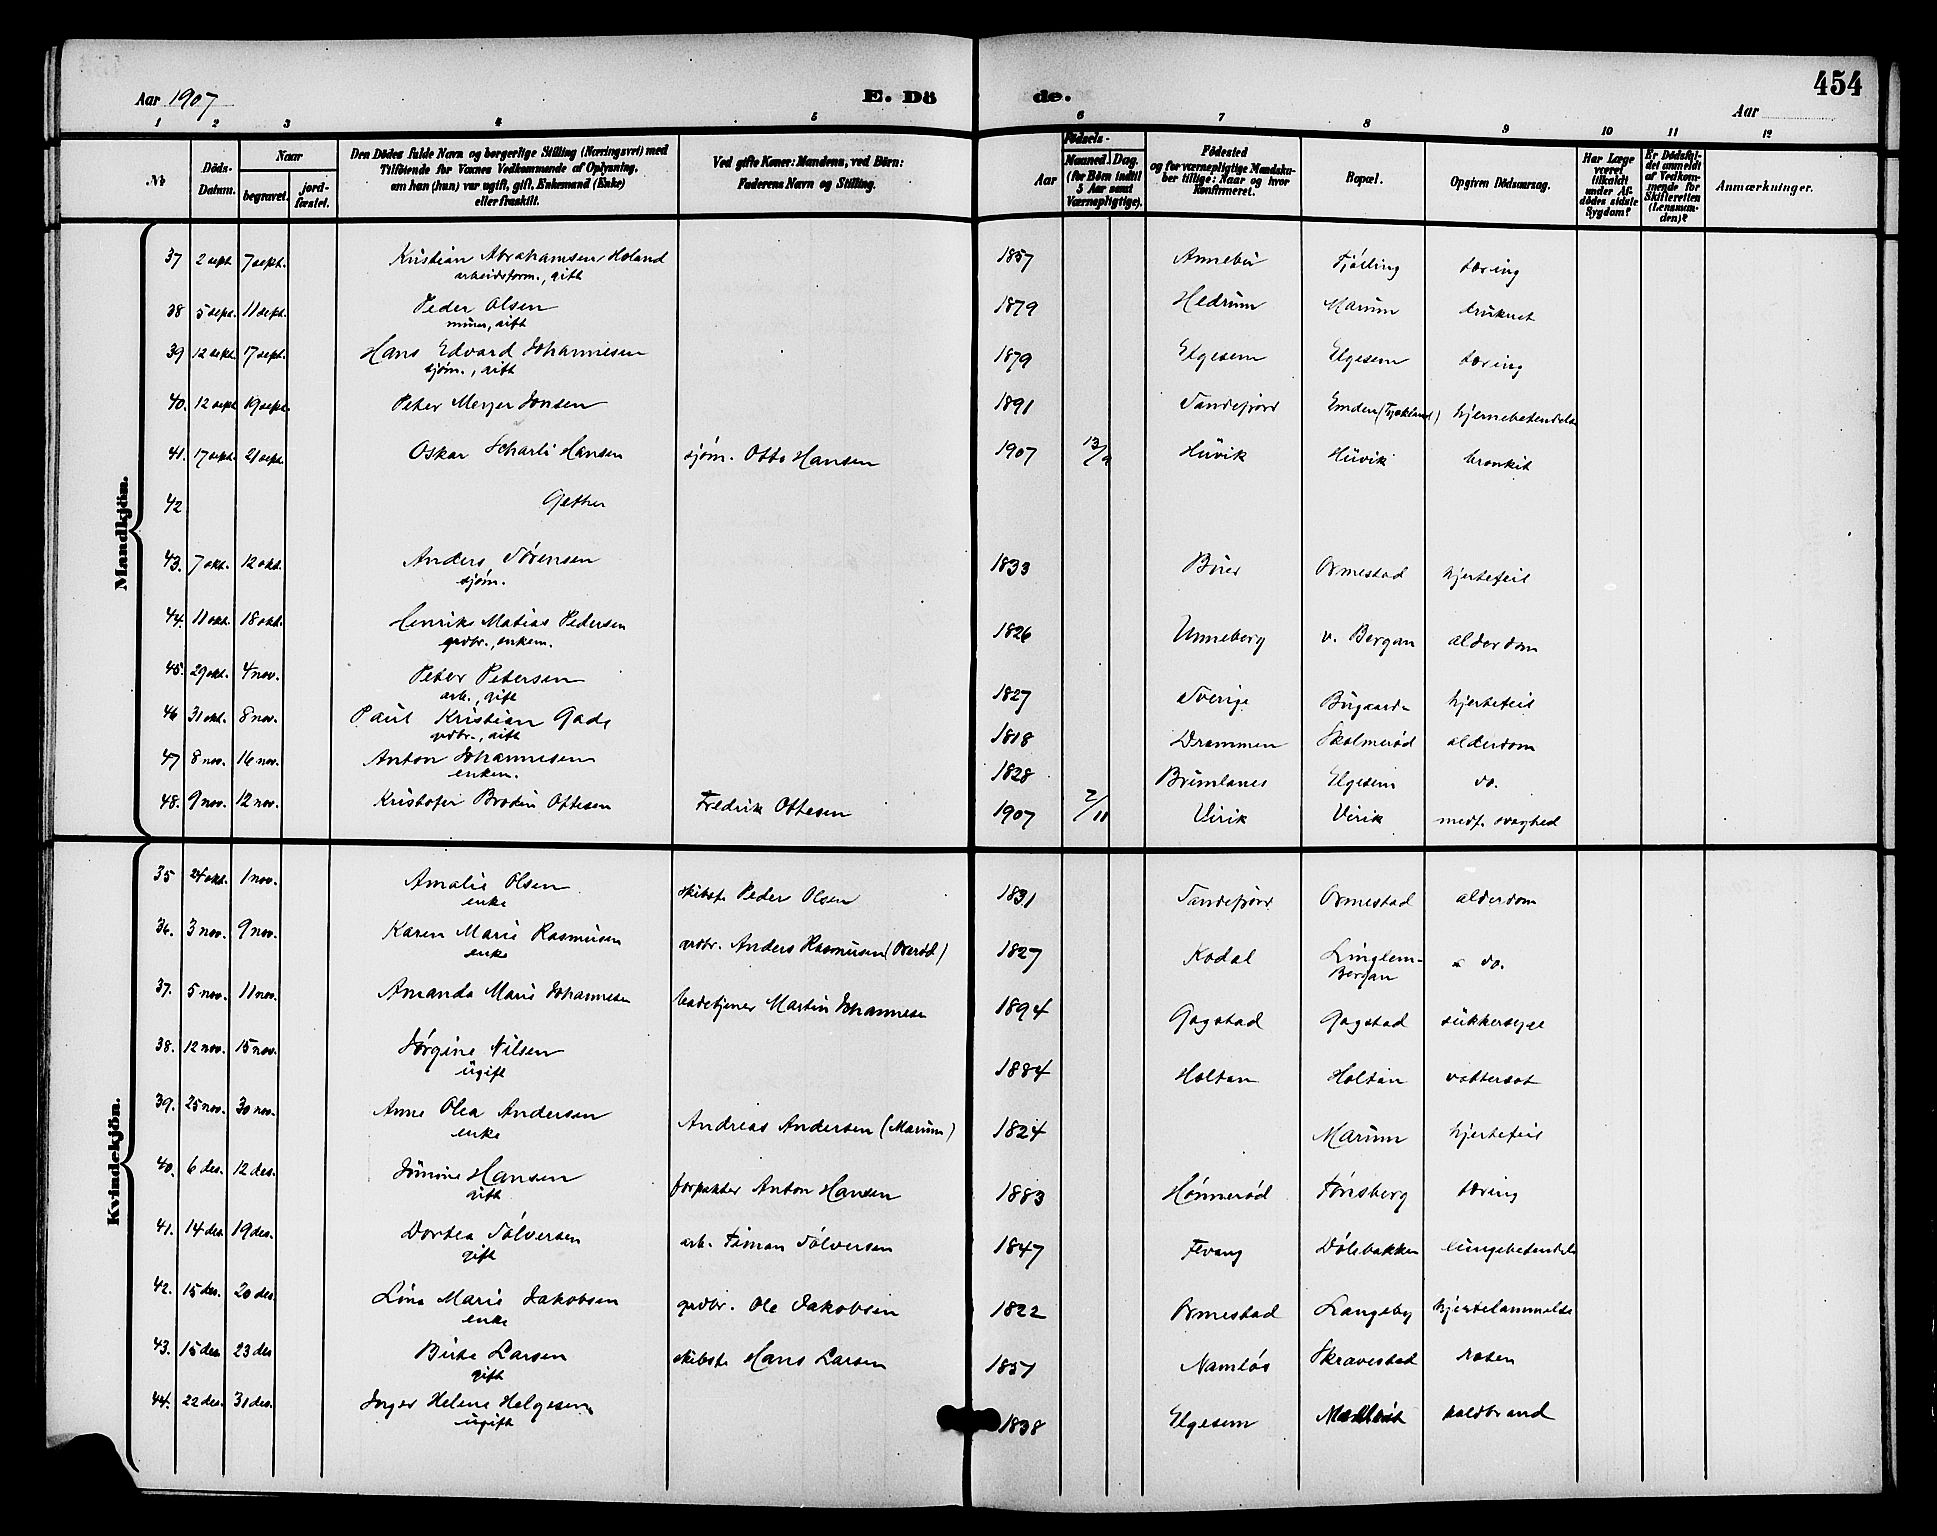 454
Aar 1907
E. Dö de.
Aar
1 2 3 4 5 6 7 8 9 10 11 12
No
Döds-Datum.
Naar begravet. jord-fæstet.
Den Dödes fulde Navn og borgerlige Stilling (Næringsvei) med Tilföiende for Voxnes Vedkommende af Oplysning, om han (hun) var ugift, gift, Enkemand (Enke) eller fraskilt.
Ved gifte Koner: Mandens, ved Börn: Faderens Navn og Stilling.
Födsels-
Aar Maaned. Dag. (for Börn indtil 5 Aar samt Værnepligtige).
Födested og for værnepligtige Mandskaber tillige: Naar og hvor Konfirmeret.
Bopæl.
Opgiven Dödsaarsag.
Har Læge været tilkaldt under Afdödes sidste Sygdom?
Er Dödsfaldet anmeldt af Vedkommende for Skifteretten (Lensmanden)?
Anmærkninger.
Mandkjön.
37 2 sept. 7 sept. Kristian Abrahamsen Holand 1857 Annebu Fjölling tæring
arbeidsform., gift
38 5 sept. 11 sept. Peder Olsen 1879 Hedrum Marum druknet
murer, gift
39 12 sept. 17 sept. Hans Edvard Johannesen 1879 Elgesem Elgesem tæring
sjøm., gift
40. 12 sept. 19 sept. Peter Meyer Jonsen 1891 Sandefjord Emden (Tyskland) hjernebetendelse
41. 17 sept. 21 sept. Oskar Scharli Hansen sjøm. Otto Hansen 1907 13/9 Huvik Huvik bronkit
42
43. 7 okt. 12 okt. Anders Sørensen 1833 Buer Ormestad hjertefeil
sjøm.
44. 11 okt. 18 okt. Henrik Matias Pedersen 1826 Unneberg v. Bergan alderdom
grdbr., enkem.
45. 29 okt. 4 nov. Peter Petersen 1827 Sverige Bugaard hjertefeil
arb., gift
46 31 okt. 8 nov. Paul Kristian Gade 1818 Drammen Skolmerød alderdom
grdbr., gift
47 8 nov. 16 nov. Anton Johannesen 1828 Brunlanes Elgesem do.
enkem.
48. 9 nov. 12 nov. Kristofer Brodin Ottesen Fredrik Ottesen 1907 2/11 Virik Virik medf. svaghed
Kvindekjön.
35 24 okt. 1 nov. Amalie Olsen skibst. Peder Olsen 1831 Sandefjord Ormestad alderdom
enke
36. 3 nov. 9 nov. Karen Marie Rasmusen grdbr. Anders Rasmusen (Overød) 1827 Kodal Linglem-Bergan do.
enke
37. 5 nov. 11 nov. Amanda Marie Johannesen badetjener Martin Johannesen 1894 Gogstad Gogstad sukkersyge
38. 12 nov. 15 nov. Jørgine Nilsen 1884 Holtan Holtan vattersot
ugift
39. 25 nov. 30 nov. Anne Olea Andersen Andreas Andersen (Marum) 1824 Marum hjertefeil
enke
40. 6 des. 12 des. Simine Hansen forpakter Anton Hansen 1883 Hønnerød Tønsberg tæring
gift
41. 14 des. 19 des. Dortea Sølversen arb. Simon Sølversen 1847 Fevang Dølebakken lungebetendelse
gift
42. 15 des. 20 des. Line Marie Jakobsen grdbr. Ole Jakobsen 1822 Ormestad Langeby hjertelammelse
enke
43. 15 des. 23 des Birte Larsen skibst. Hans Larsen 1857 Namløs Skravestad rosen
gift
44. 22 des. 31 des. Inger Helene Helgesen 1838 Elgesem koldbrand
ugift